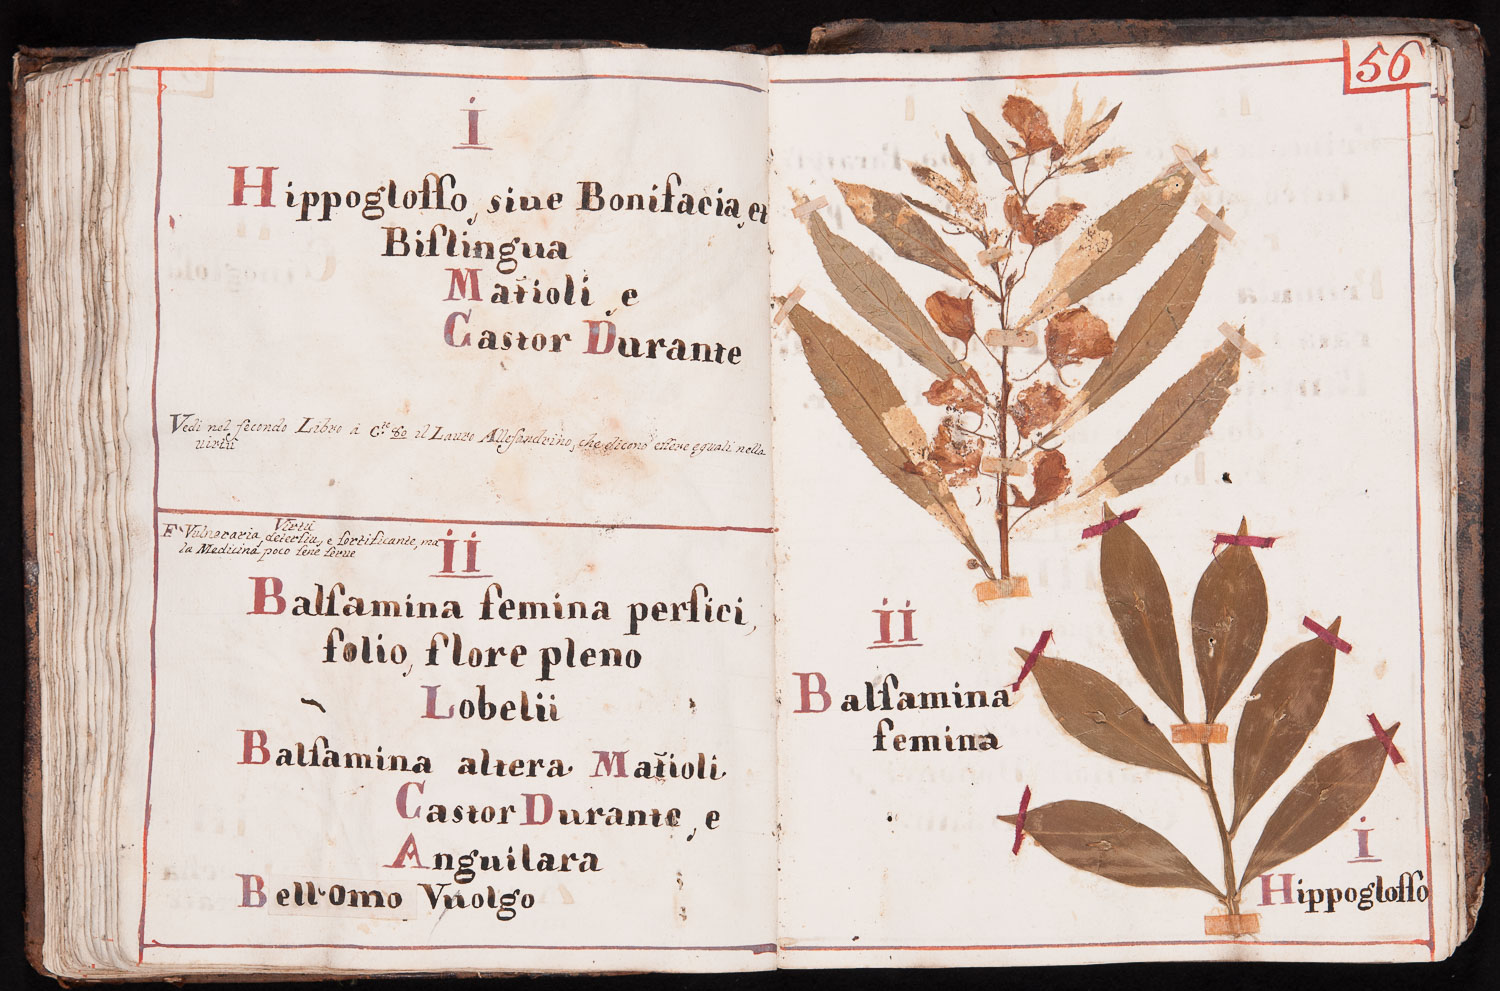 i
Hippogloſſo, siue Bonifacia, et
Biſlingua
Matioli e
Castor Durante
Vedi nel ſecondo Libro à C.te 80 il Lauro Alleſandrino, che dicono eſſere eguali nella
uirtù
Virtù
E' Vulneraria, deterſiu, e fortificante, ma
la Medicina poco ſene ſerue
ii
Balſamina femina perſici,
folio, flore pleno
Lobelii
Balſamina altera Matioli
Castor Durante, e
Anguilara
Bell'Omo Vuolgo
56
ii
Balſamina
femina
i
Hippogloſſo